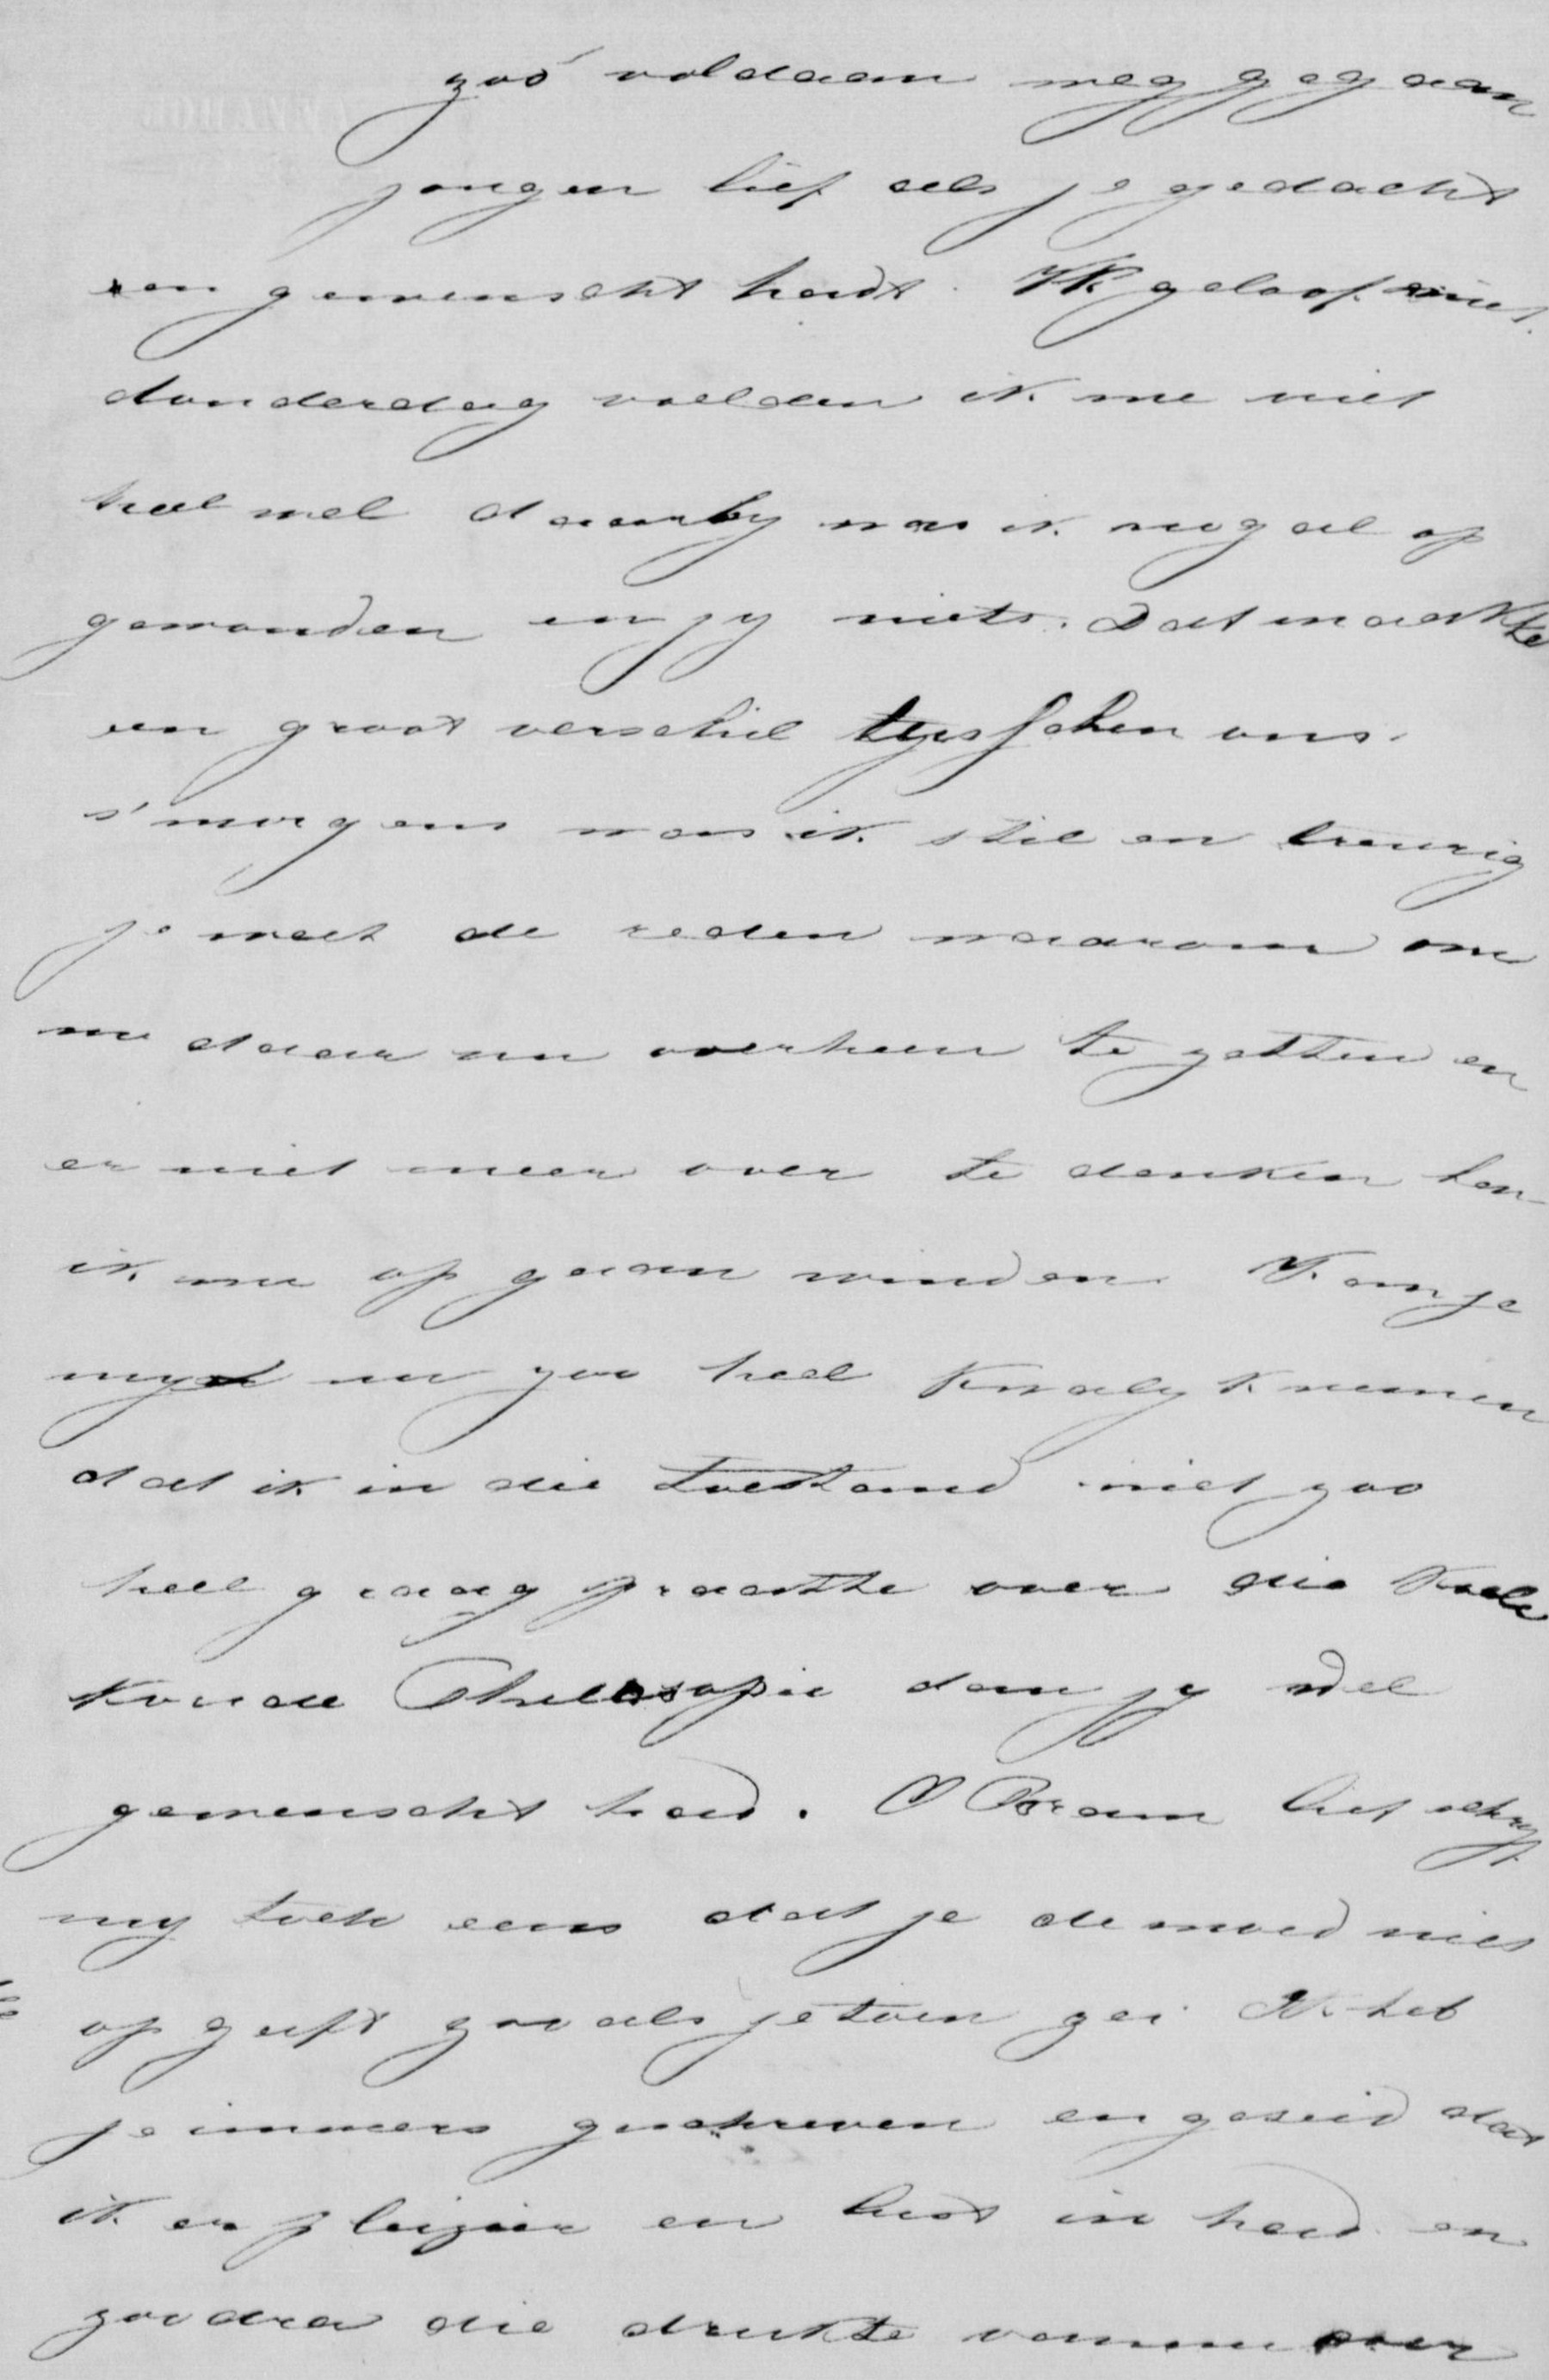 zoó voldaan weggegaan
jongen lief als je gedacht
en gewenscht hadt. Ik geloof niet.
donderdag voelden ik me niet
heel wel daarby was ik nog al op
gewonden en jy niets. Dat maakte
een groot verschil tusschen ons.
s'morgens was ik stil en treurig
je weet de reden waarom om
me daar nu overheen te zetten en
er niet meer over te denken ben
ik me op gaan winden. Kan je
my nu zoo heel kwalyk nemen
dat ik in die toestand niet zoo
heel graag praatte over die kale
koude Philosopie dan jy wel
gewenscht had. O Bram het schryf
my toch eens dat je de moed niet
op geeft zooals je toen zei Ik heb
je immers geschreven en gezeid dat
ik er pleizier en lust in had en
zoodra die drukte van me over